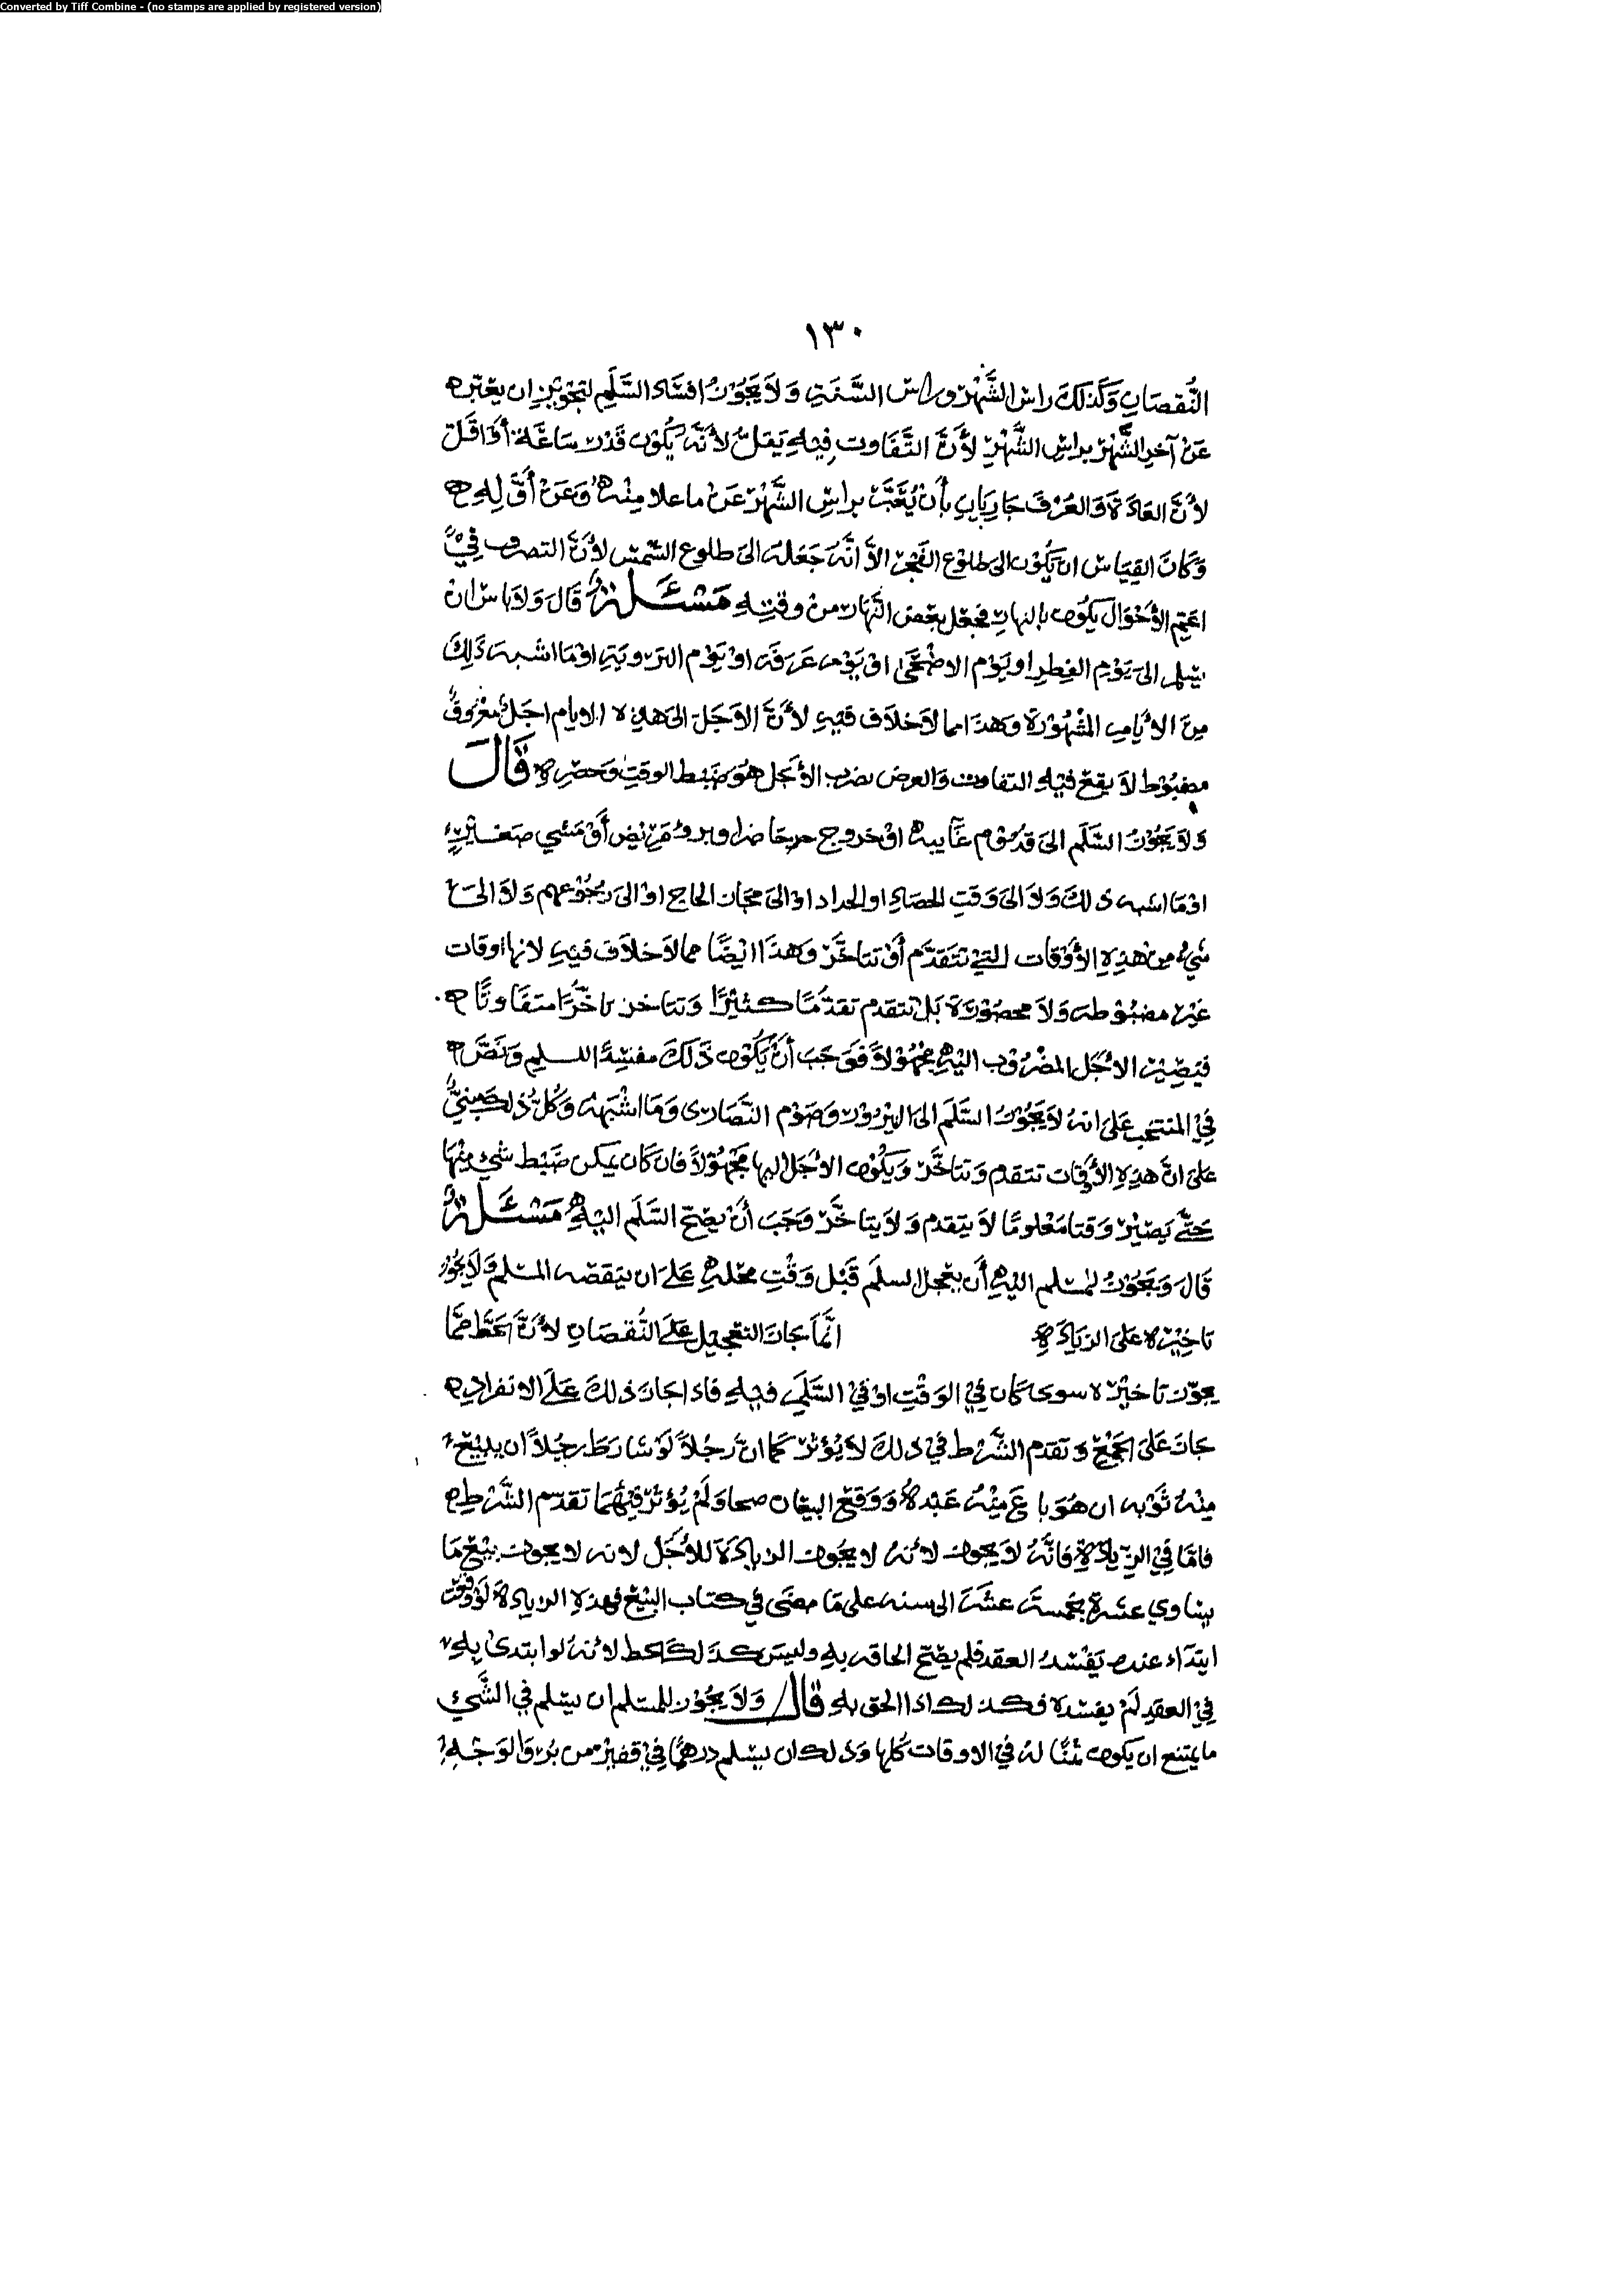 Converted by Tiff Combine - (no stamps are applied by registered version)
١٣٠
النُّقصَانِ وَكَذلكَ راس الشَّهْرِ وراس السَّنَةِ وَلاَ يَجُوْزُ افسَادالسَّلَمِ لتجْويْزِ ان يعبّر
عَنْ آخرِ الشَّهْرِ براسِ الشَّهْرِ لأَنَّ التَّفَاوت فِيْهِ يَقلُّ لأنَّه يَكُوْن قَدْر سَاعَة أوْ اقَل
لأنَّ العَادَةَ وَالعُرْفَ جَارِيَانِ بأنْ يُعَبَّرَ براسِ الشَّهْرِ عَنْ ماعلا مِنْه وَعَنْ أوَّلِهِ
وَكَانَ القِيَاس ان يَكُوْن الى طلوْع الفَجْرِ الاَّ انَّهُ جَعَلَهُ الىَ طلوع الشَّمْس لأنَّ التصرف فِيْ
اعَمِّ الأَحْوَالِ يَكُوْن بالنهارِ فجعَلَ بعْض النَّهَار منْ وقتِهِ مَسْئَلَة قَالَ وَلاَ باس ان
يسْلم الىَ يَوْمِ الفِطرِ او يَوْم الاضْحَىٰ اوْ يَوْم عَرَفَة اوْ يَوْم الترويَةِ اوْ مَا اشبه ذَلِكَ
مِنَ الأيَّامِ المَشْهُوْرَةِ وهذا مما لاَ خلاَف فِيْهِ لأنَّ الأجَلَ الىَ هذِه الايام اجَلٌ معْرُوْفٌ
مضبُوْط لاَ يقعُ فيْهِ التفاوت وَالغرض بضرب الأجَلِ هُوَ ضَبْط الوقتِ وَحصْرِه قَالَ
وَلاَ يَجُوْزُ السَّلَم الىَ قدُوْم غَايبٍ اوْ خروج حاضر او برء مَرِيْض أوْ مَشي صَغيْرٍ
اوْمَا اشبه ذلكَ وَلاَ الىَ وَقتِ الحصَادِ او الجداد او الىَ مجئ الحاج اوْ الىَ رجُوْعهم وَلاَ الىَ
شَيْءٍ من هذِهِ الأوْقات التيْ تتَقدَّم أوْ تتاخَّر وَهذَا ايْضًا مما لاَ خلاَف فيْهِ لانها اوقات
غيْر مضبُوْطة وَلاَ محصُوْرَة بَلْ تتقدم تقدُّمًا كثيْرًا وَتتاخر تاخُّرًا متفَاوتًا
فيَصِيْر الأجَل المضْرُوْب اليْهِ مجْهُوْلاً فوَجَبَ أنْ يَكُوْن ذَلكَ مفسِدًا للسلم وَنَصَّ
فِيْ المنتخب عَلىَ انهُ لاَ يَجُوْزُ السَّلَم الىَ النيروز وَصَوْم النَّصَارى وَمَا اشْبَهه وَكُلُّ ذلك مَبنيٌّ
عَلىَ انَّ هذِهِ الأوْقات تتقدم وَتتاخَّر وَيَكُوْن الأجَل اليها مَجْهُوْلاً فان كَان يمكن ضَبْط شيءٍ منْهَا
حَتَّى يَصِيْر وَقتا مَعْلومًا لاَ يتقدم وَلاَ يتاخَّر وَجَبَ أنْ يصِحّ السَّلَم اليْهِ مَسْئَلَة
قَالَ وَيَجُوْزُ للمسْلم اليْهِ أن يعجل السلَم قَبْل وَقْتِ محَله عَلىَ ان ينقصه المسْلم وَلاَ يَجُوْز
تاخِيْره عَلىَ الزيَادَةِ انَّمَا جَازَ التعْجيل عَلىَ النُّقصَانِ لأنَّ الحَطَّ ممَّا
يجوّز تاخيْرَه سوى كَان فِيْ الوَقْتِ اوْ فِيْ السَّلَم فيْهِ فاذا جَازَ ذلكَ عَلىَ الانفرادِ
جَازَ عَلىَ الجَمْعِ وَتقدم الشَّرْط فيْ ذلكَ لاَ يُؤثر كمَا انَّ رَجُلاً لَوْ شارَطَ رجُلاً ان يبِيْع
مِنْهُ ثَوْبه ان هُوَ باعَ مِنْهُ عَبْدهُ وَوَقعَ البيْعَان صحا وَلَمْ يُؤثرْ فيْهُمَا تقدّم الشَّرْطِ
فامَّا فِيْ الزِّيَادَةِ فَانَّهُ لاَ يَجوز لأنهُ لا يَجُوز الزيادَة للأجَل لانه لا يجوز بيْع مَا
يساوي عشَرة بخَمسَة عشَر الى سنه على مَا مضَى في كتاب البَيْع فهذهِ الزيادة لَوْ وقعَت
ابتدَاء عنده يَفْسُد العقد فلم يصِحّ الحاقه بهِ وليسَ كَذلك الحط لأنهُ لو ابتدى بهِ
فِيْ العقدِ لَمْ يفسده فكَذلك اذا الحق بهِ قَال وَلاَ يَجُوْز للمسلم ان يسْلم في الشَّيْء
ما يمتنع ان يكون ثمنًا لهُ فيْ الاوقات كُلها وَذلك ان يسلم درهمًا فيْ قفيْز من بُرّ وَالوَجْهِ